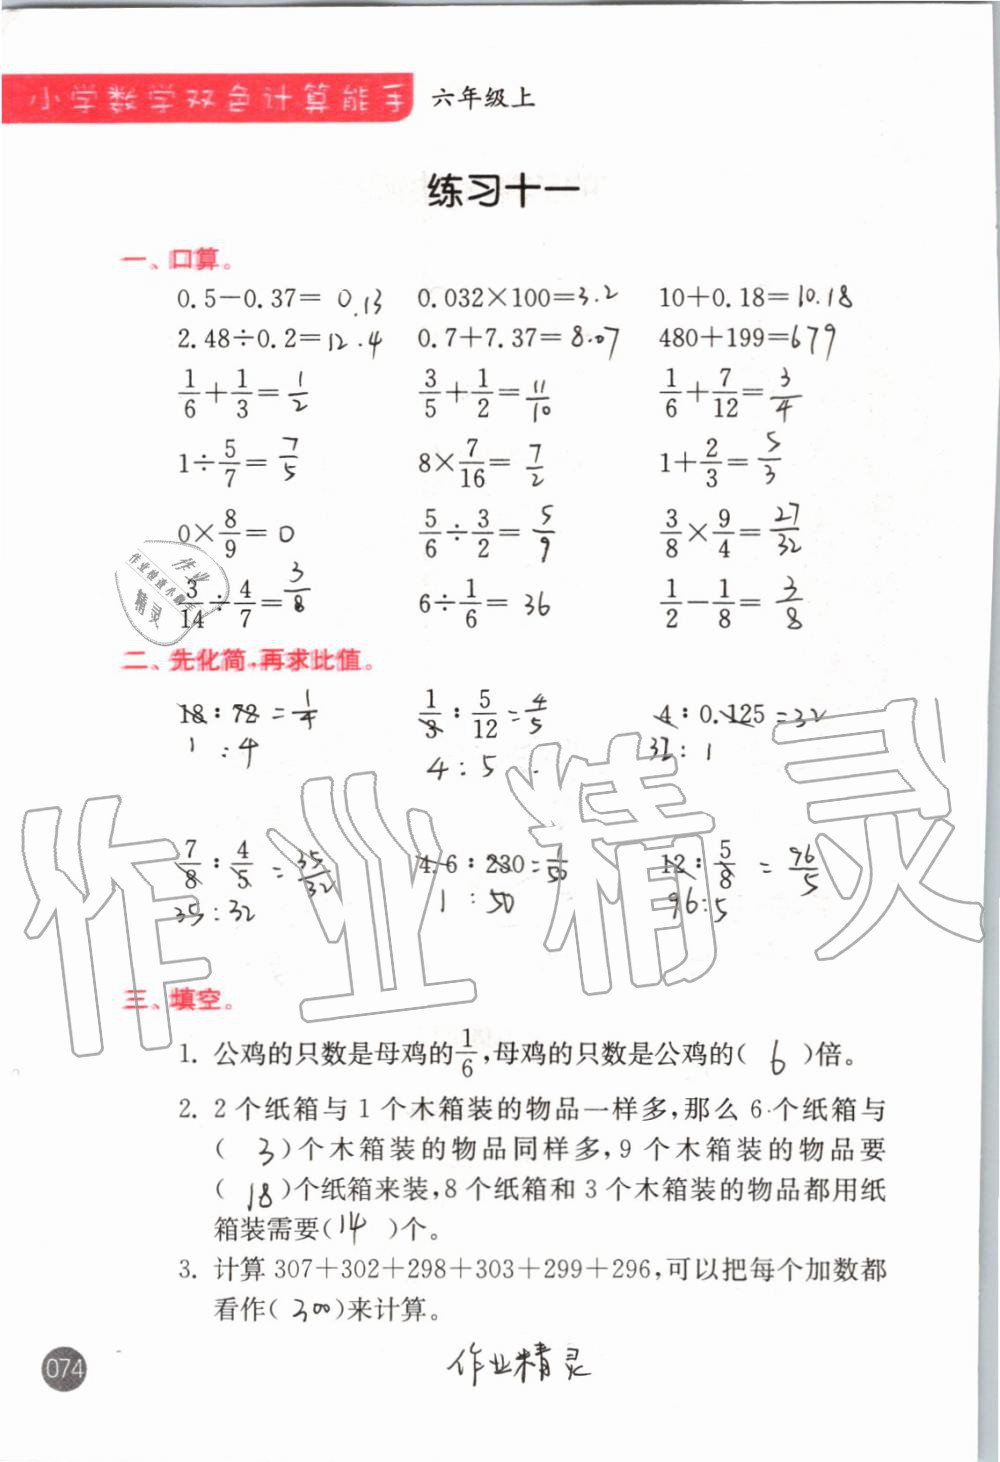 小学数学双色计算能手 六年级上
练习十一
一、口算。
0.5－0.37＝ 0.13 0.032×100＝3.2 10＋0.18＝10.18
2.48÷0.2＝12.4 0.7＋7.37＝8.07 480＋199＝679
1/6＋1/3＝1/2 3/5＋1/2＝11/10 1/6＋7/12＝3/4
1÷5/7＝7/5 8×7/16＝7/2 1＋2/3＝5/3
0×8/9＝0 5/6÷3/2＝5/9 3/8×9/4＝27/32
3/14÷4/7＝3/8 6÷1/6＝36 1/2－1/8＝3/8
二、先化简,再求比值。
18∶72＝1/4 1/3∶5/12＝4/5 4∶0.125＝32
1:4 4:5 32:1
7/8∶4/5＝35/32 4.6∶230＝1/50 12∶5/8＝96/5
35:32 1:50 96:5
三、填空。
1. 公鸡的只数是母鸡的1/6,母鸡的只数是公鸡的( 6 )倍。
2. 2个纸箱与1个木箱装的物品一样多,那么6个纸箱与
( 3 )个木箱装的物品同样多,9个木箱装的物品要
( 18 )个纸箱来装,8个纸箱和3个木箱装的物品都用纸
箱装需要( 14 )个。
3. 计算307＋302＋298＋303＋299＋296,可以把每个加数都
看作( 300 )来计算。
074 作业精灵
作业精灵
作业
作业检查小助手
精灵